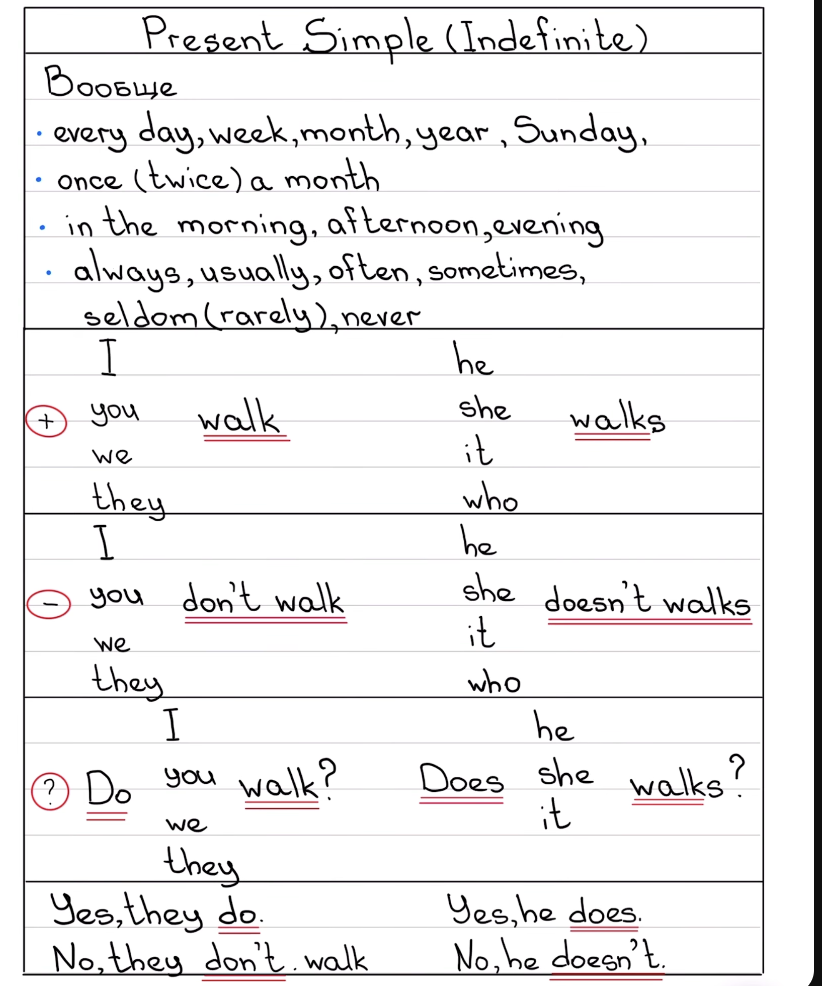 Present Simple (Indefinite)
Вообще
· every day, week, month, year, Sunday,
· once (twice) a month
· in the morning, afternoon, evening
· always, usually, often, sometimes,
seldom (rarely), never
I he
+ you walk she walks
we it
they who
I he
- you don't walk she doesn't walks
we it
they who
I he
? Do you walk? Does she walks?
we it
they
Yes, they do. Yes, he does.
No, they don't. walk No, he doesn't.